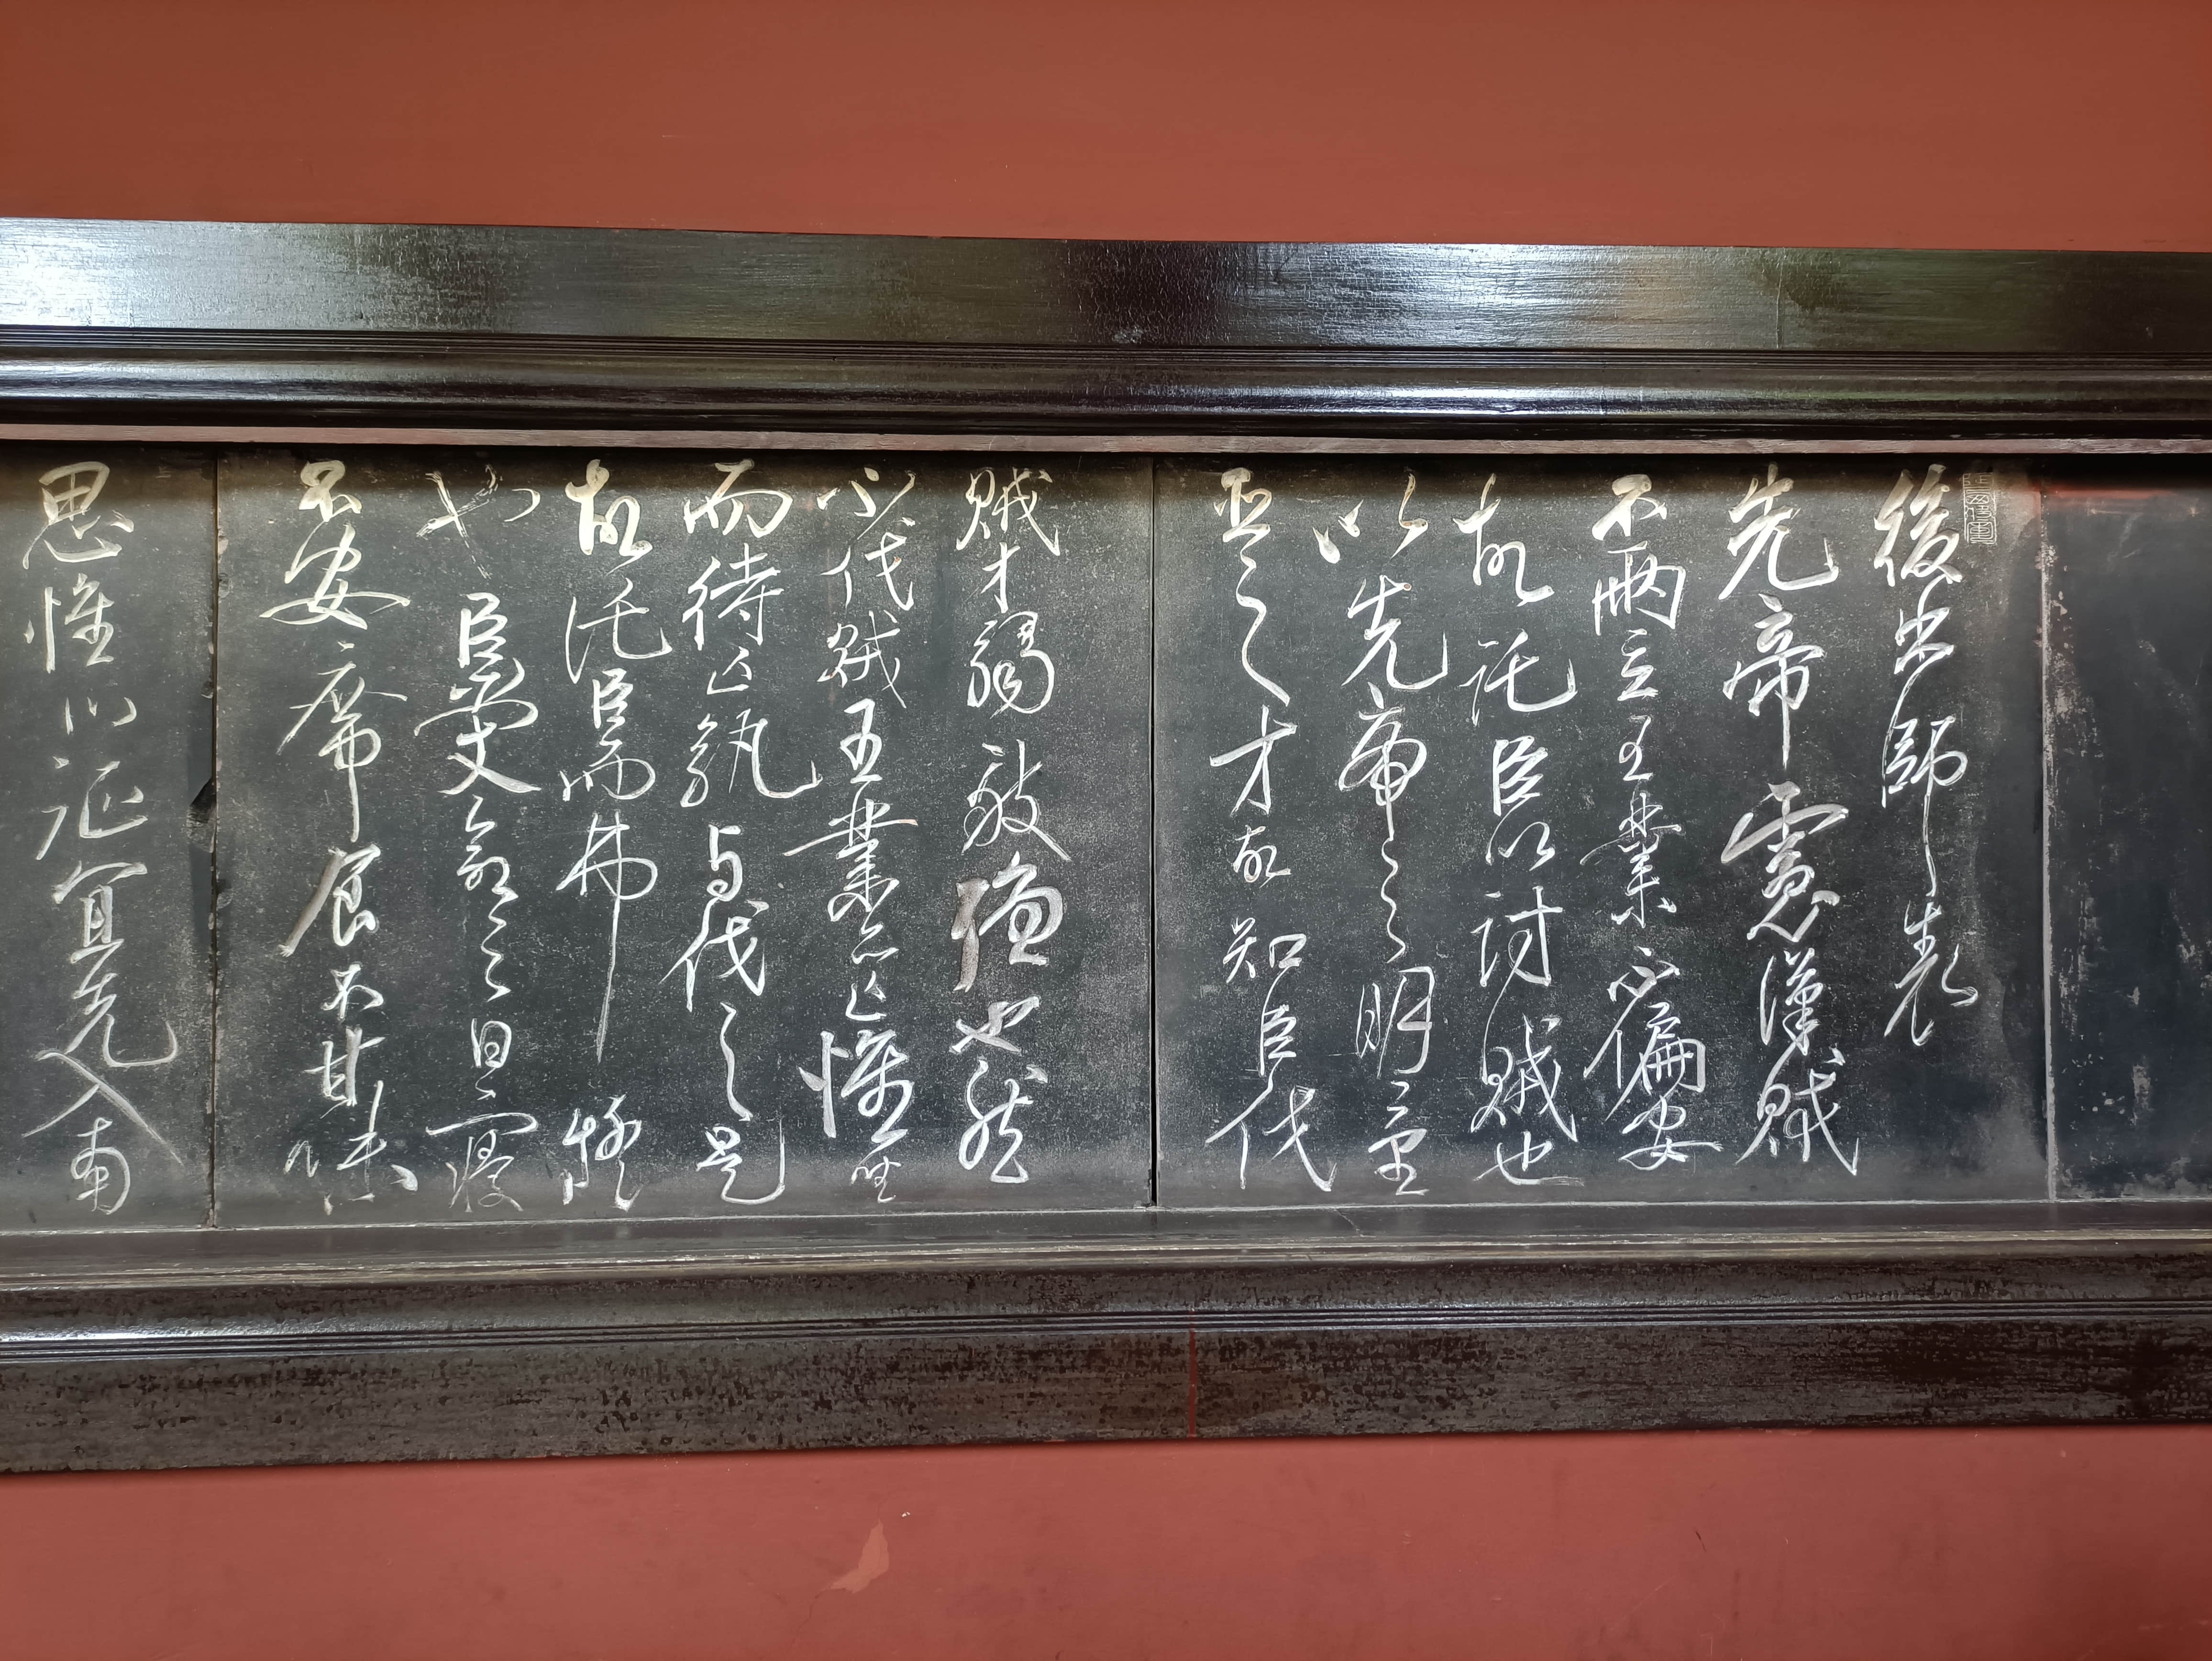 後出師表
先帝慮漢賊
不兩立王業不偏安
故託臣以討賊也
以先帝之明量
臣之才故知臣伐
賊才弱敵強也然
不伐賊王業亦亡惟坐
而待亡孰与伐之是
故託臣而弗疑
也臣受命之日寢
不安席食不甘味
思惟北征宜先入南